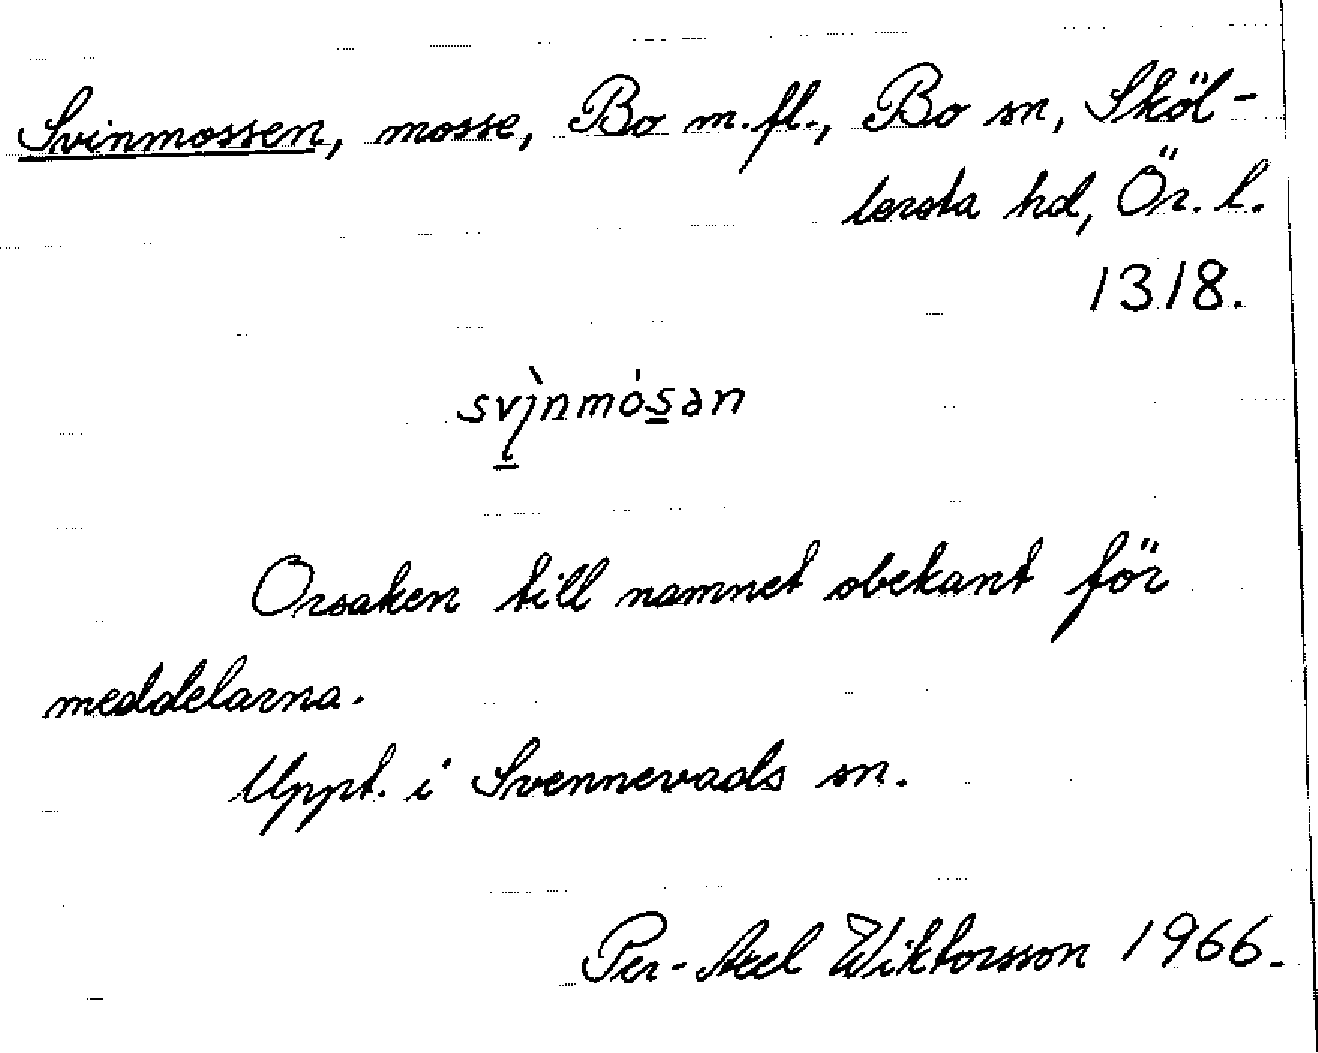 Svinmossen, mosse, Bo m.fl., Bo sn, Sköl-
lersta hd, Ör. l.
1318.
svı̀nmósan
Orsaken till namnet obekant för
meddelarna.
Uppt. i Svennevads sn.
Per-Axel Wiktorsson 1966.